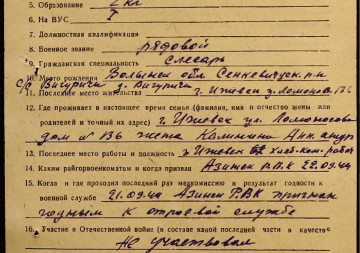 5. Образование 2 кл
6. На ВУС I
7. Должностная квалификация
8. Военное звание рядовой
9. Гражданская специальность слесарь
10. Место рождения Волынск обл Сенкевичуск. р-н
с/с Вигуричи д. Вигуричи
11. Последнее место жительства г. Ижевск у. Ломонос. 136
12. Где проживает в настоящее время семья (фамилия, имя и отчество жены или
родителей и точный их адрес) г. Ижевск ул. Ломоносова
дом № 136 жена Калинина Анн.
13. Последнее место работы и должность г. Ижевск
14. Каким райгорвоенкоматом и когда призван Азинск РВК 22.09.44
15. Когда и где проходил последний раз медкомиссию и результат годности к
военной службе 21.09.44 Азинск РВК признан
годным к строевой службе
16. Участие в Отечественной войне (в составе какой последней части и качестве
Не участвовал